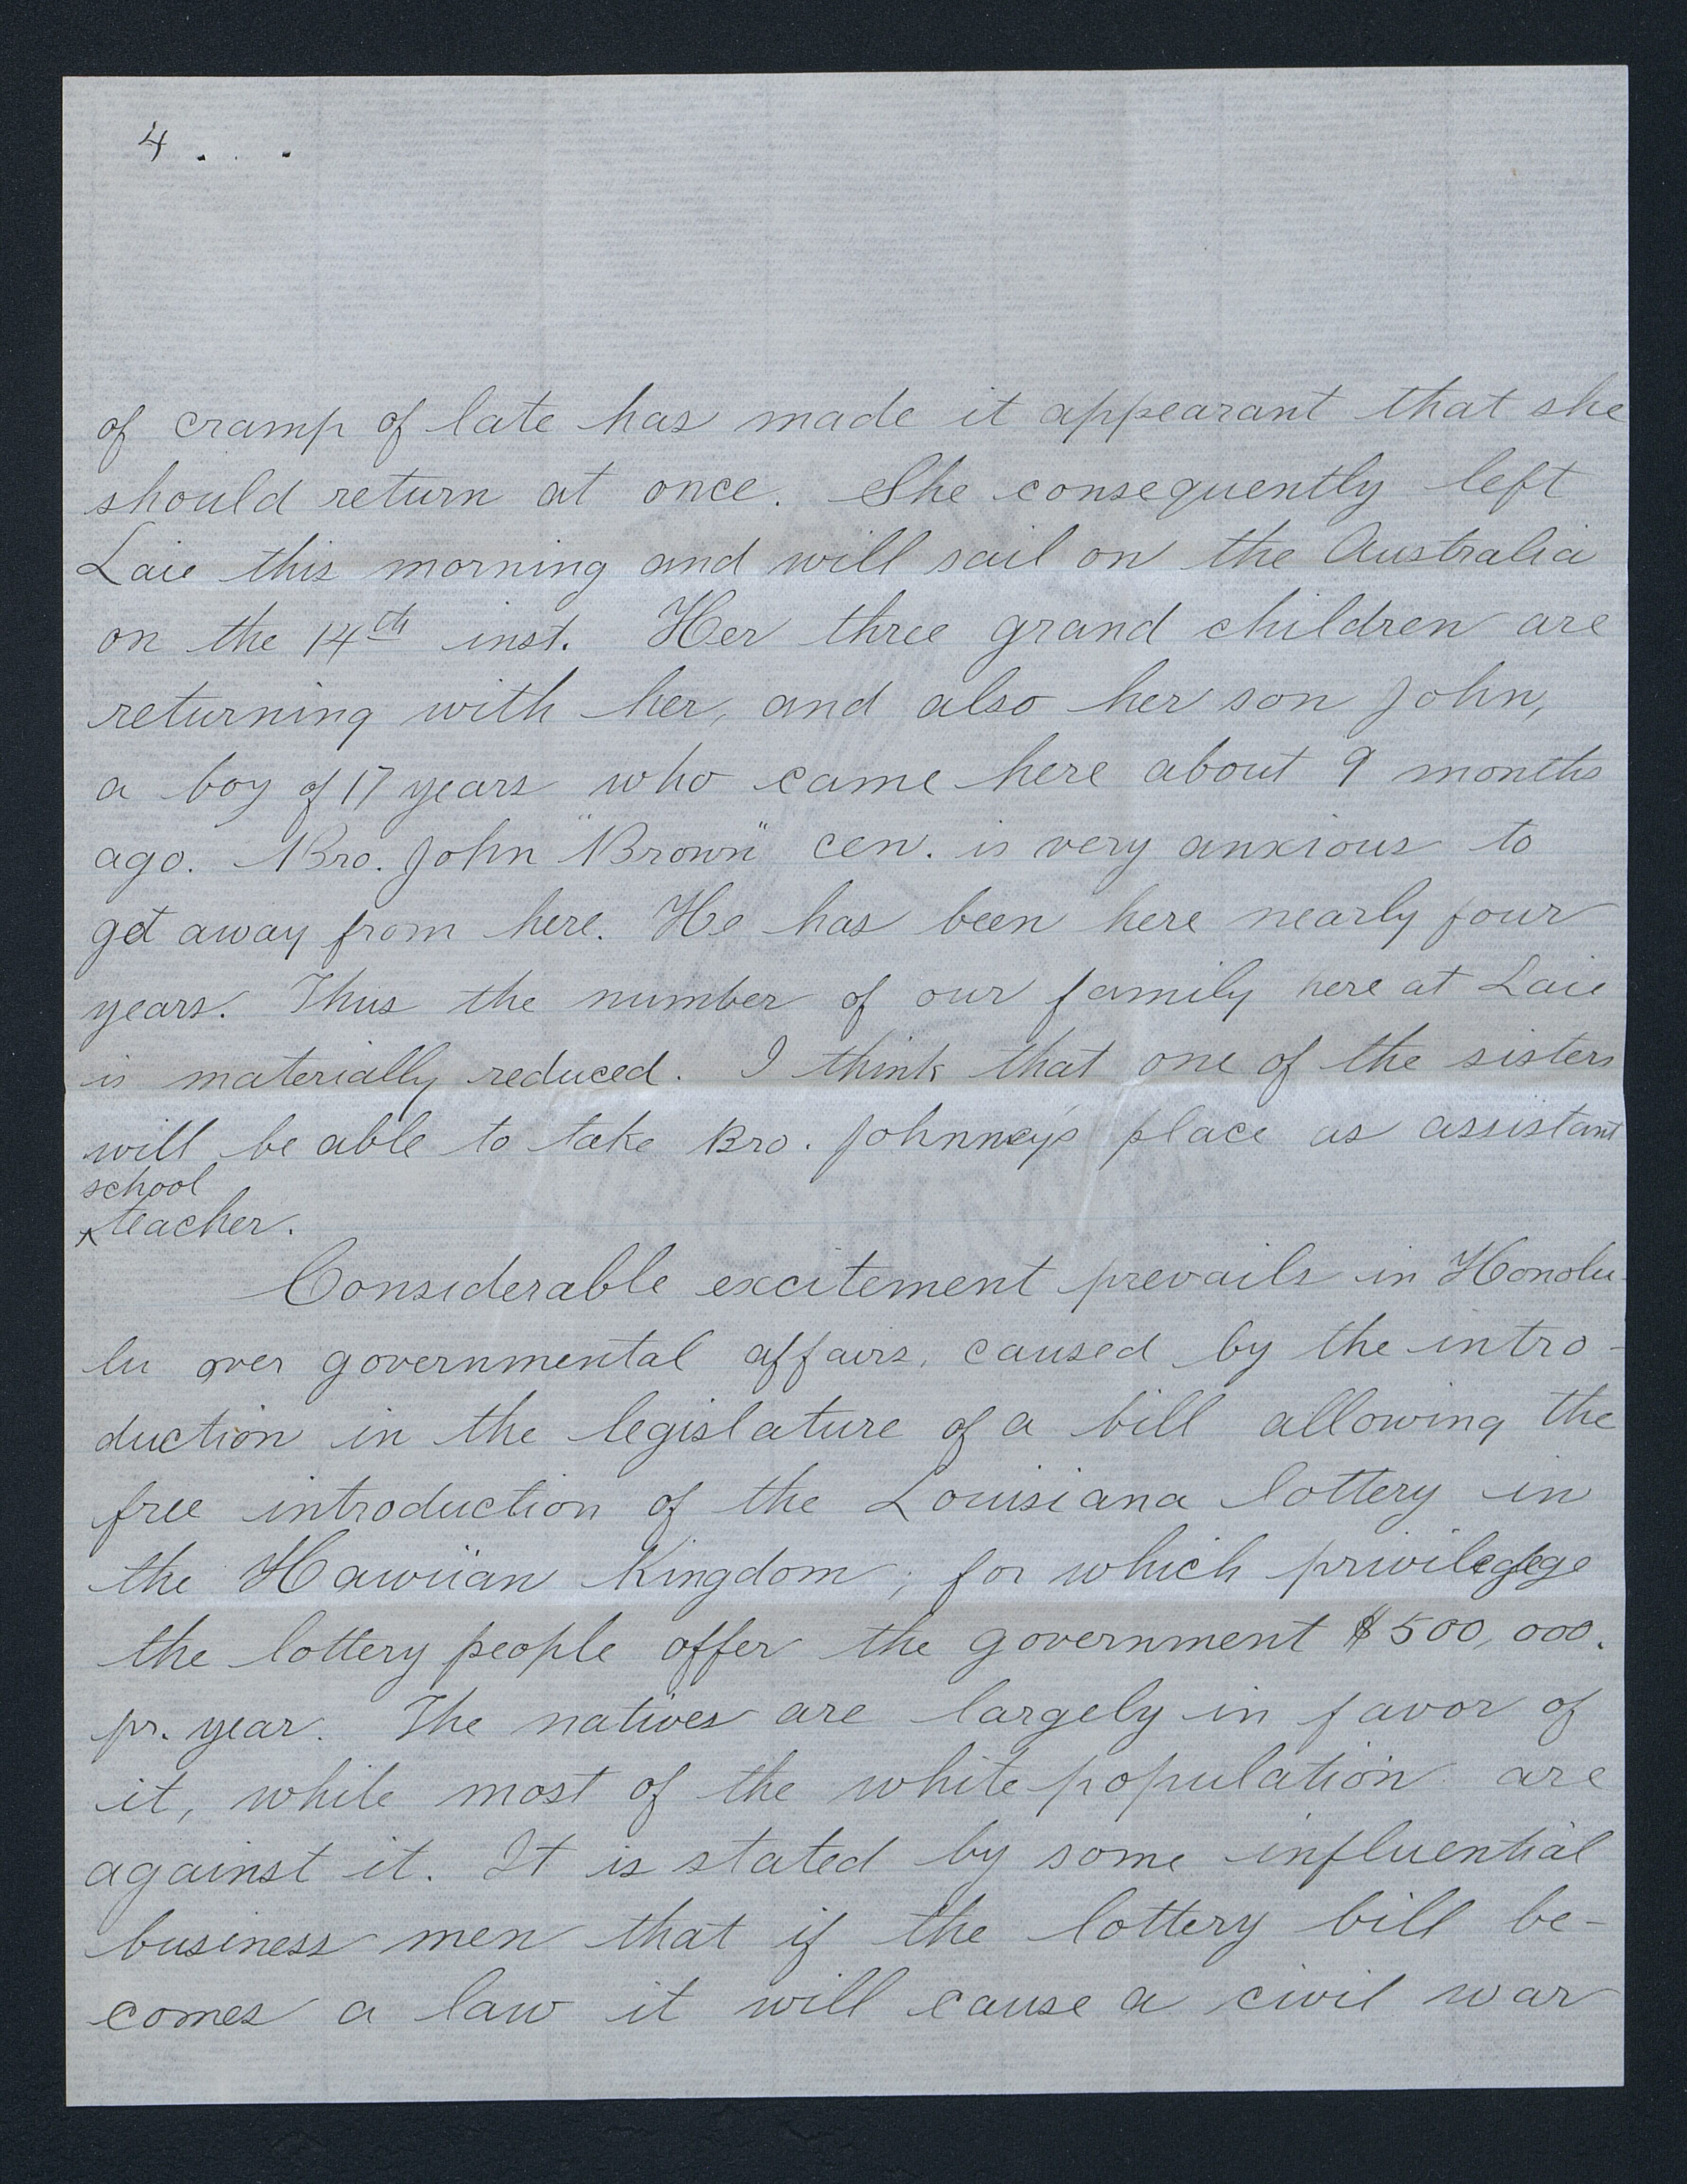 4 . . .
of cramp of late has made it appearant that she
should return at once. She consequently left
Laie this morning and will sail on the Australia
on the 14th inst. Her three grand children are
returning with her, and also her son John,
a boy of 17 years who came here about 9 months
ago. Bro. John "Brown" cen. is very anxious to
get away from here. He has been here nearly four
years. Thus the number of our family here at Laie
is materially reduced. I think that one of the sisters
will be able to take Bro. Johnney's place as assistant
school
^teacher.
Considerable excitement prevails in Honolu-
lu over governmental affairs, caused by the intro-
duction in the legislature of a bill allowing the
free introduction of the Louisiana lottery in
the Hawiian Kingdom; for which
the lottery people offer the government $500,000.
pr. year. The natives are largely in favor of
it, while most of the white population are
against it. It is stated by some influential
business men that if the lottery bill be-
comes a law it will cause a civil war